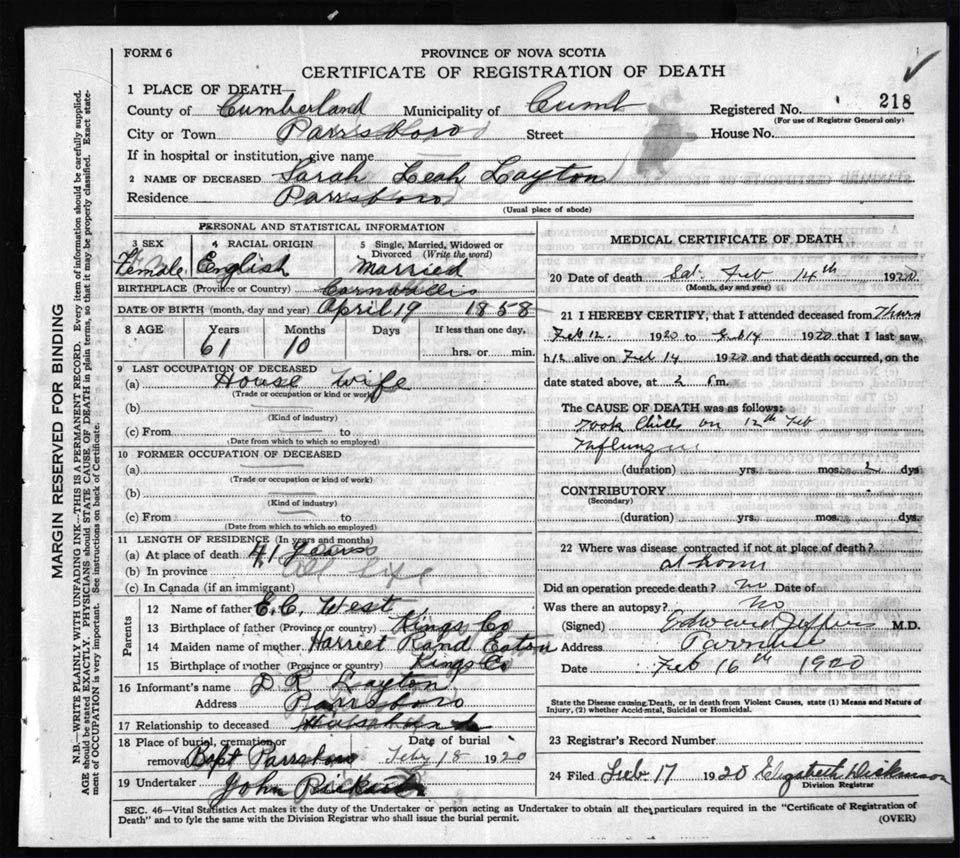 FORM 6
PROVINCE OF NOVA SCOTIA
CERTIFICATE OF REGISTRATION OF DEATH
1 PLACE OF DEATH—
County of Cumberland Municipality of Cumb Registered No. 218
(For use of Registrar General only)
City or Town Parrsboro Street House No.
If in hospital or institution, give name
2 NAME OF DECEASED Sarah Leah Layton
Residence Parrsboro
(Usual place of abode)
PERSONAL AND STATISTICAL INFORMATION
3 SEX 4 RACIAL ORIGIN 5 Single, Married, Widowed or Divorced (Write the word)
Female English Married
BIRTHPLACE (Province or Country) Cornwallis
DATE OF BIRTH (month, day and year) April 19 1858
8 AGE Years Months Days If less than one day,
61 10 hrs. or min.
9 LAST OCCUPATION OF DECEASED
(a) House wife
(Trade or occupation or kind of work)
(b)
(Kind of industry)
(c) From to
(Date from which to which so employed)
10 FORMER OCCUPATION OF DECEASED
(a)
(Trade or occupation or kind of work)
(b)
(Kind of industry)
(c) From to
(Date from which to which so employed)
11 LENGTH OF RESIDENCE (In years and months)
(a) At place of death 41 years
(b) In province All life
(c) In Canada (if an immigrant)
Parents
12 Name of father C.C. West
13 Birthplace of father (Province or country) Kings Co
14 Maiden name of mother Harriet Rand Eaton
15 Birthplace of mother (Province or country) Kings Co
16 Informant's name D R Layton
Address Parrsboro
17 Relationship to deceased Husband
18 Place of burial, cremation or removal Bapt Parrsboro Date of burial Feby 18 1920
19 Undertaker John
MEDICAL CERTIFICATE OF DEATH
20 Date of death Sat. Feb 14th 1920
(Month, day and year)
21 I HEREBY CERTIFY, that I attended deceased from Thurs
Feb 12. 1920 to Feb 14 1920 that I last saw
h alive on Feb 14 1920 and that death occurred, on the
date stated above, at 2 m.
The CAUSE OF DEATH was as follows:
Took Chills on 12th Feb
Influenza
(duration) yrs. mos. 2 dys
CONTRIBUTORY
(Secondary)
(duration) yrs. mos. dys.
22 Where was disease contracted if not at place of death?
at home
Did an operation precede death? no Date of
Was there an autopsy? No
(Signed) Edward Jeffers M.D.
Address Parrsboro
Date Feb 16th 1920
State the Disease causing Death, or in death from Violent Causes, state (1) Means and Nature of
Injury, (2) whether Accidental, Suicidal or Homicidal.
23 Registrar's Record Number
24 Filed Feb 17 1920 Elizabeth Dickinson
Division Registrar
SEC. 46—Vital Statistics Act makes it the duty of the Undertaker or person acting as Undertaker to obtain all the particulars required in the "Certificate of Registration of
Death" and to fyle the same with the Division Registrar who shall issue the burial permit. (OVER)
MARGIN RESERVED FOR BINDING
N.B.—WRITE PLAINLY WITH UNFADING INK—THIS IS A PERMANENT RECORD. Every item of information should be carefully supplied.
AGE should be stated EXACTLY. PHYSICIANS should STATE CAUSE OF DEATH in plain terms, so that it may be properly classified. Exact state-
ment of OCCUPATION is very important. See instructions on back of Certificate.